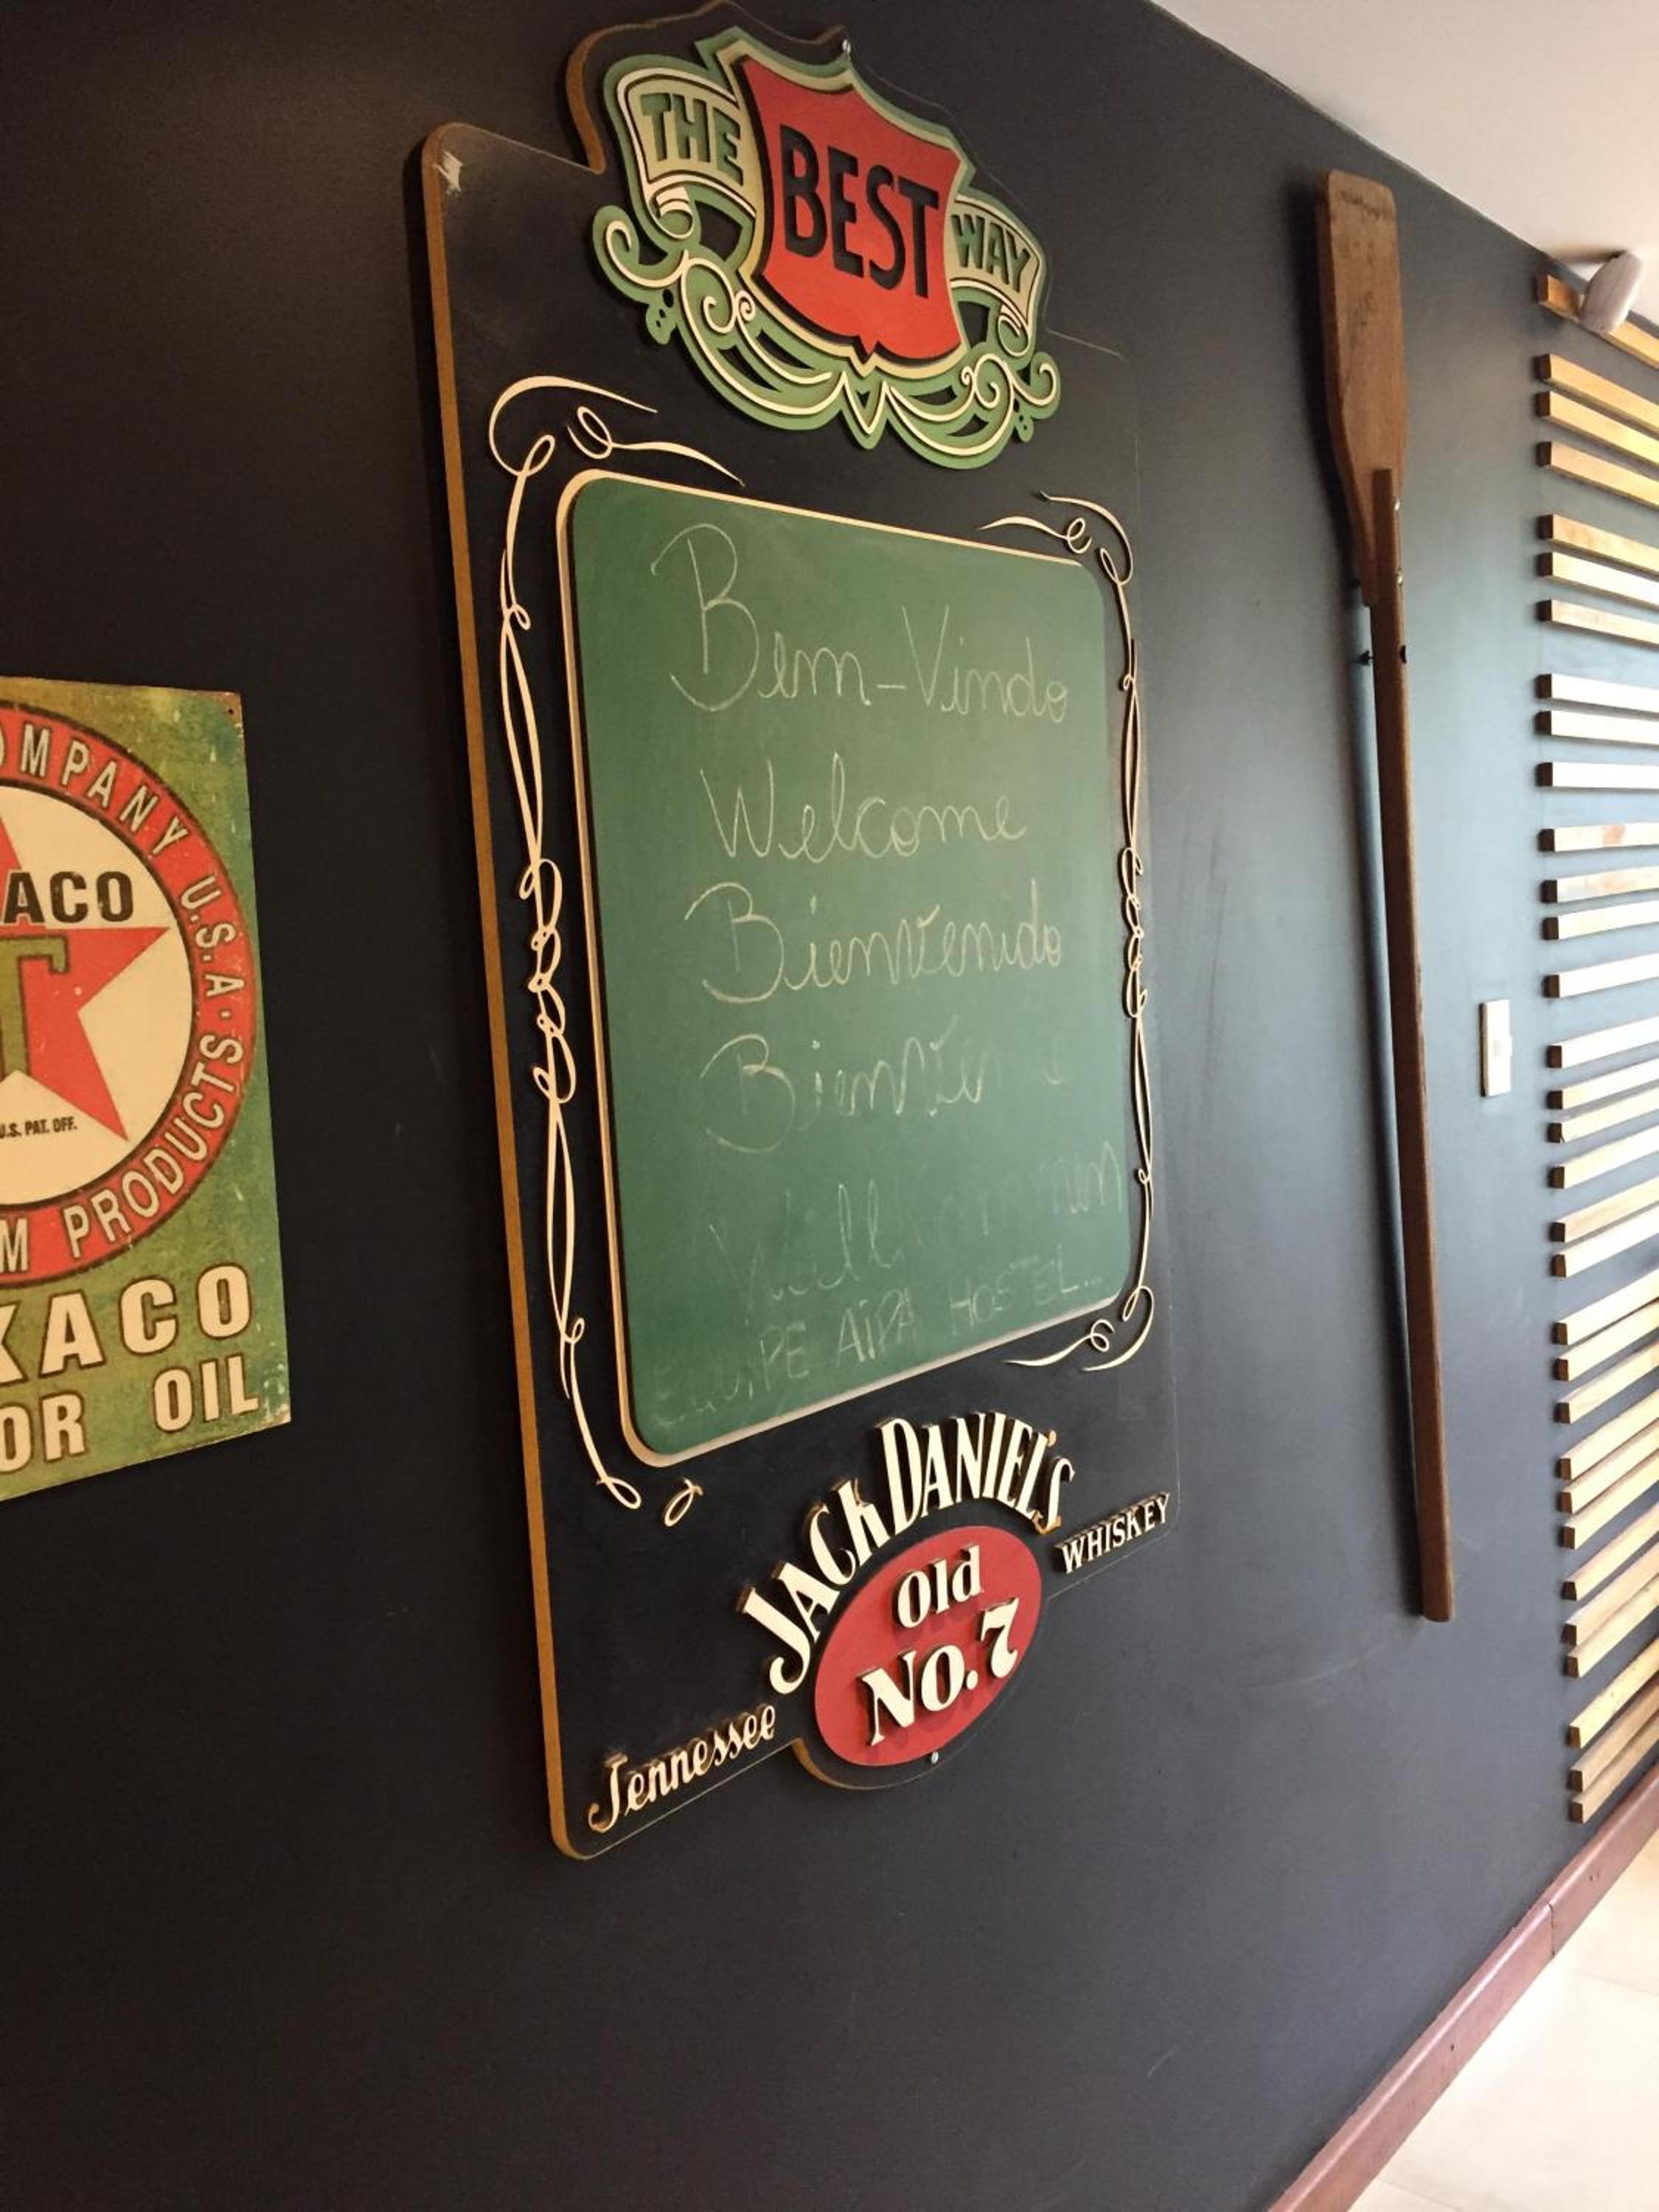 THE BEST WAY
Bem-Vindo
Welcome
Bienvenido
AIPA HOSTEL...
JACK DANIEL'S
Old
NO. 7
Tennessee WHISKEY
OMPANY U.S.A. · 
ACO
T
U.S. PAT. OFF.
M PRODUCTS
XACO
OR OIL